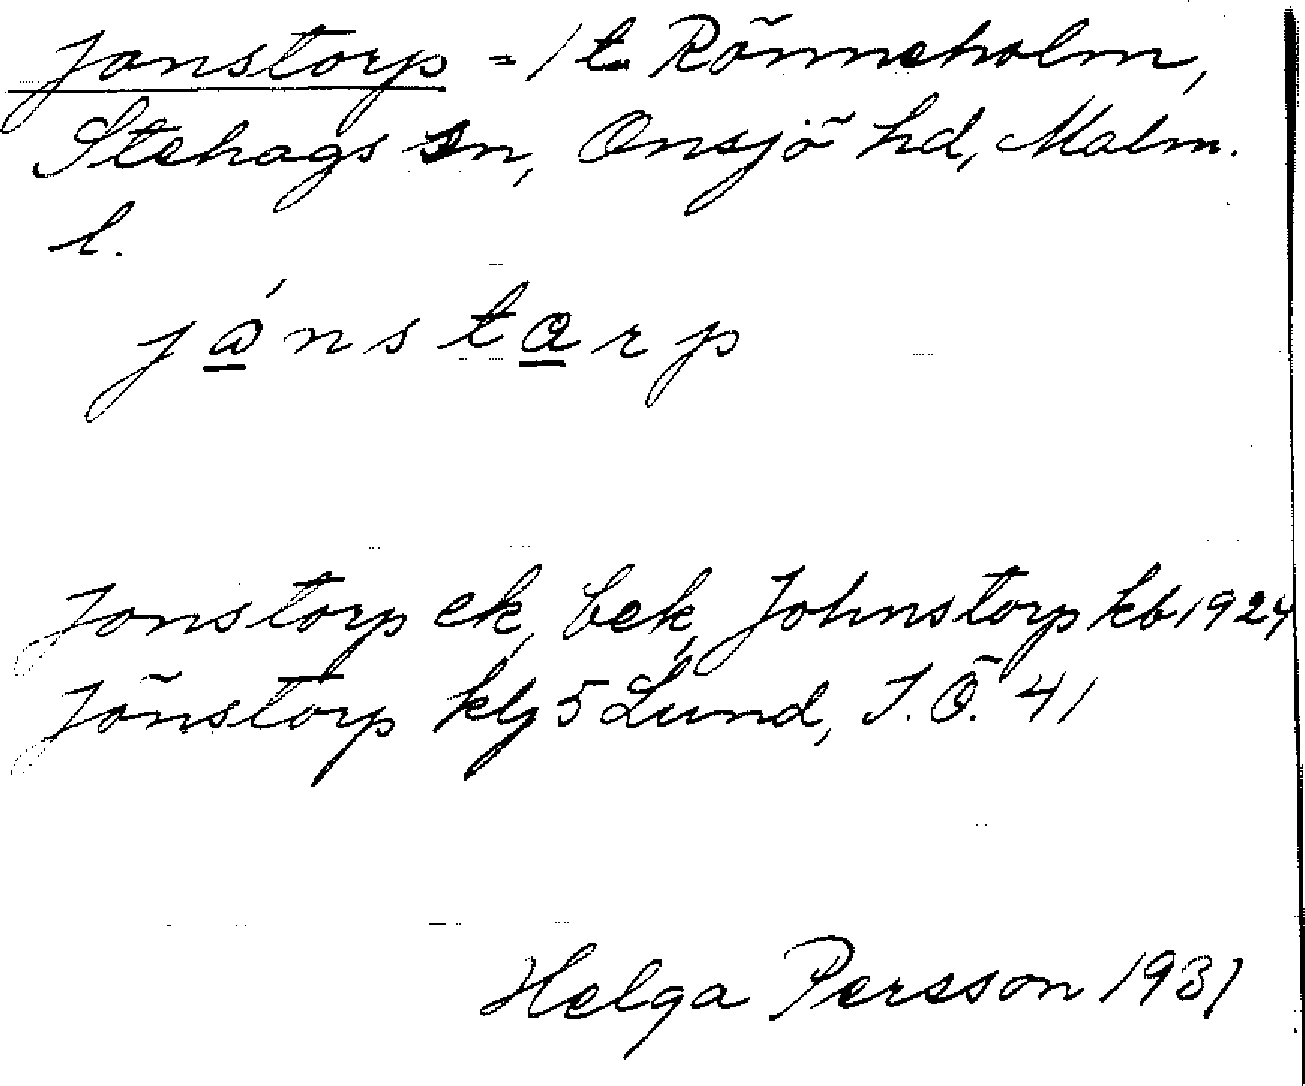 Jonstorp = 1 t. Rönneholm,
Stehags sn, Onsjö hd, Malm.
l.
jánstarp
Jonstorp ek, bek, Johnstorp kb 1924
Jönstorp klj 5 Lund, J.Ö. 41
Helga Persson 1931